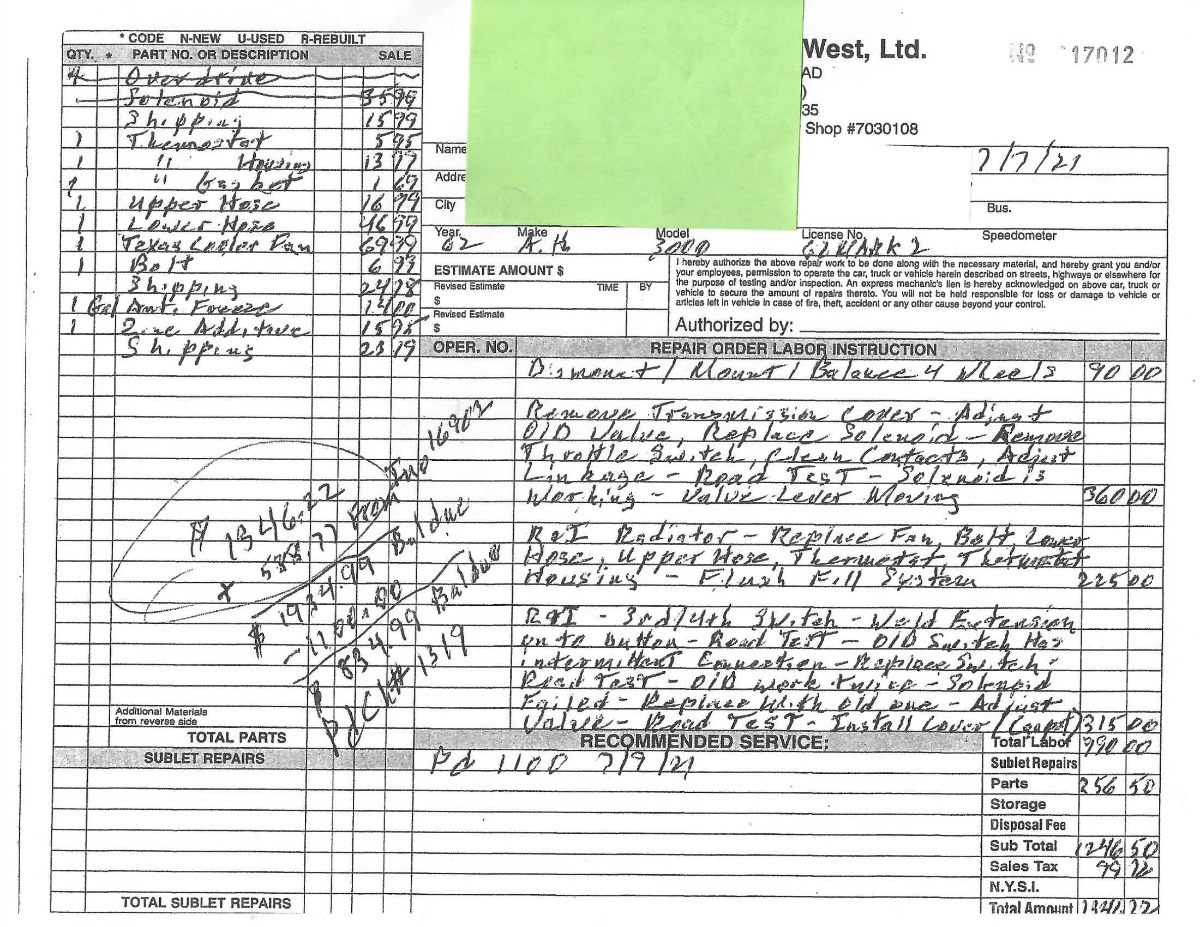 * CODE N-NEW U-USED R-REBUILT
QTY. * PART NO. OR DESCRIPTION SALE
Overdrive
Solenoid 35 99
Shipping 15 99
1 Thermostat 5 95
1 " Housing 13 99
1 " Gasket 1 69
1 Upper Hose 16 99
1 Lower Hose 46 99
1 Texas Cooler Fan 69 99
1 Bolt 6 99
Shipping 24 78
1 Gal Ant. Freeze 14 00
1 Zinc Additive 15 95
Shipping 23 19
West, Ltd.
No 17012
AD
)
35
Shop #7030108
7/7/21
Name
Addre
City
Bus.
Year 62 Make A.H Model 3000 License No. 62 MARK 2 Speedometer
ESTIMATE AMOUNT $
Revised Estimate TIME BY
$
Revised Estimate
$
I hereby authorize the above repair work to be done along with the necessary material, and hereby grant you and/or
your employees, permission to operate the car, truck or vehicle herein described on streets, highways or elsewhere for
the purpose of testing and/or inspection. An express mechanic's lien is hereby acknowledged on above car, truck or
vehicle to secure the amount of repairs thereto. You will not be held responsible for loss or damage to vehicle or
articles left in vehicle in case of fire, theft, accident or any other cause beyond your control.
Authorized by:
OPER. NO. REPAIR ORDER LABOR INSTRUCTION
Dismount / Mount / Balance 4 Wheels 90 00
Remove Transmission Cover - Adjust
O/D Valve, Replace Solenoid - Remove
Throttle Switch, Clean Contacts, Adjust
Linkage - Road Test - Solenoid is
Working - Valve Lever Moving 360 00
R&I Radiator - Replace Fan, Bolt Lower
Hose, Upper Hose, Thermostat, Thermostat
Housing - Flush Fill System 225 00
R&I - 3rd/4th Switch - Weld Extension
on to button - Road Test - O/D Switch Has
intermittent Connection - Replace Switch -
Road Test - O/D work twice - Solenoid
Failed - Replace With old one - Adjust
Valve - Road Test - Install Cover / Carpet 315 00
$ 1346.22
+ 588.77 From Inv 16902
$ 1934.99 Bal due
- 1100.00
$ 834.99 Baldue
Pd Ck# 1319
Additional Materials
from reverse side
TOTAL PARTS
SUBLET REPAIRS
TOTAL SUBLET REPAIRS
RECOMMENDED SERVICE:
Pd 1100 7/9/21
Total Labor 990 00
Sublet Repairs
Parts 256 50
Storage
Disposal Fee
Sub Total 1246 50
Sales Tax 99 72
N.Y.S.I.
Total Amount 1346 22